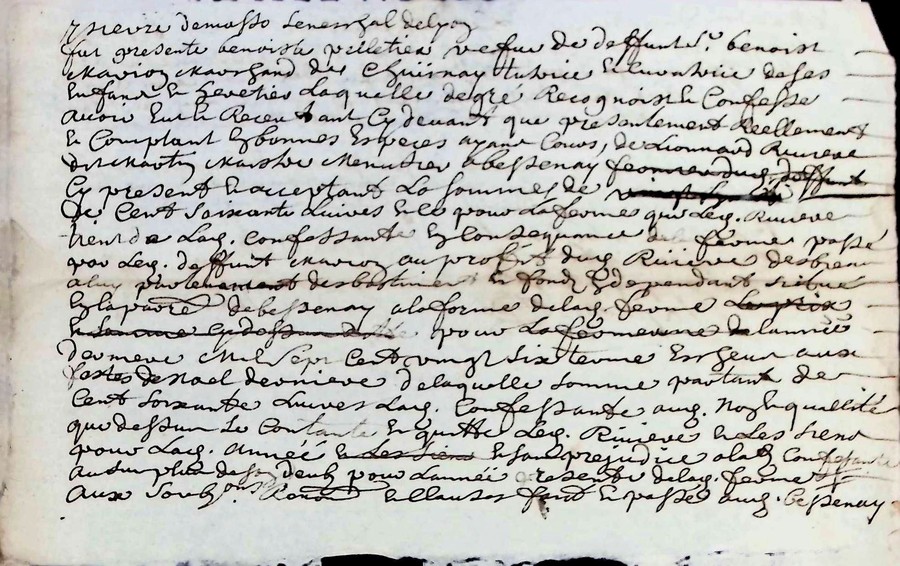 demasso senerchal delyon
fut presente benoiste pelletier vefue de deffunt Sr. benoist
Marion Marchand de Chuisnay tutrice et curatrice de ses
enfans et heretier Laquelle de gré Recognoist et Confesse
avoir Eut et Receu tant Cy devant que presentement Reellement
en Comptant et bonnes Especes ayant Cours, de Lionnard Riviere
dit Martin Maistre Menusier a bessenay
Cy present et acceptant La somme de
de Cent soixante Livres et ce pour La ferme que Led. Riviere
tient de Lad. Confessante En Consequance ferme passé
par Led. deffunt Marion au profit dud. Riviere des biens
a luy des bastiment et fondz dependant situé
En la parre. de bessenay a la forme de lad. ferme Le prix
et somme cy dessus pour La ferme de lannée
derniere Mil sept Cent vingt six terme Escheu aux
festes de Noel derniere de laquelle somme partant de
Cent soixante Livres Lad. Confessante aud. Nom et quallité
que dessus se Contante et quitte Led. Riviere et Les siens
pour Lad. année et Les siens et sans prejudice a lad. Confessante
au surplus de son deub pour Lannée presente de lad. ferme
aux soub. ons Renon et Clauses fait et passé aud. bessenay